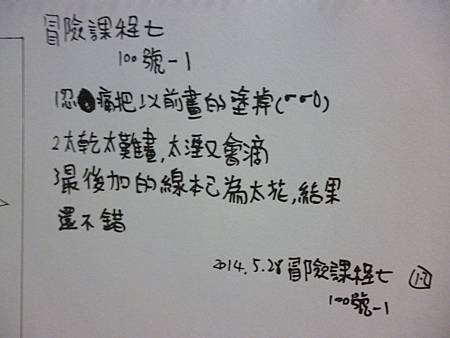 冒險課程七
100號-1
1忍痛把以前畫的塗掉(σσ0)
2太乾太難畫,太溼又會滴
3最後加的線本已為太花,結果
還不錯
2014.5.28冒險課程七
100號-1
1-2